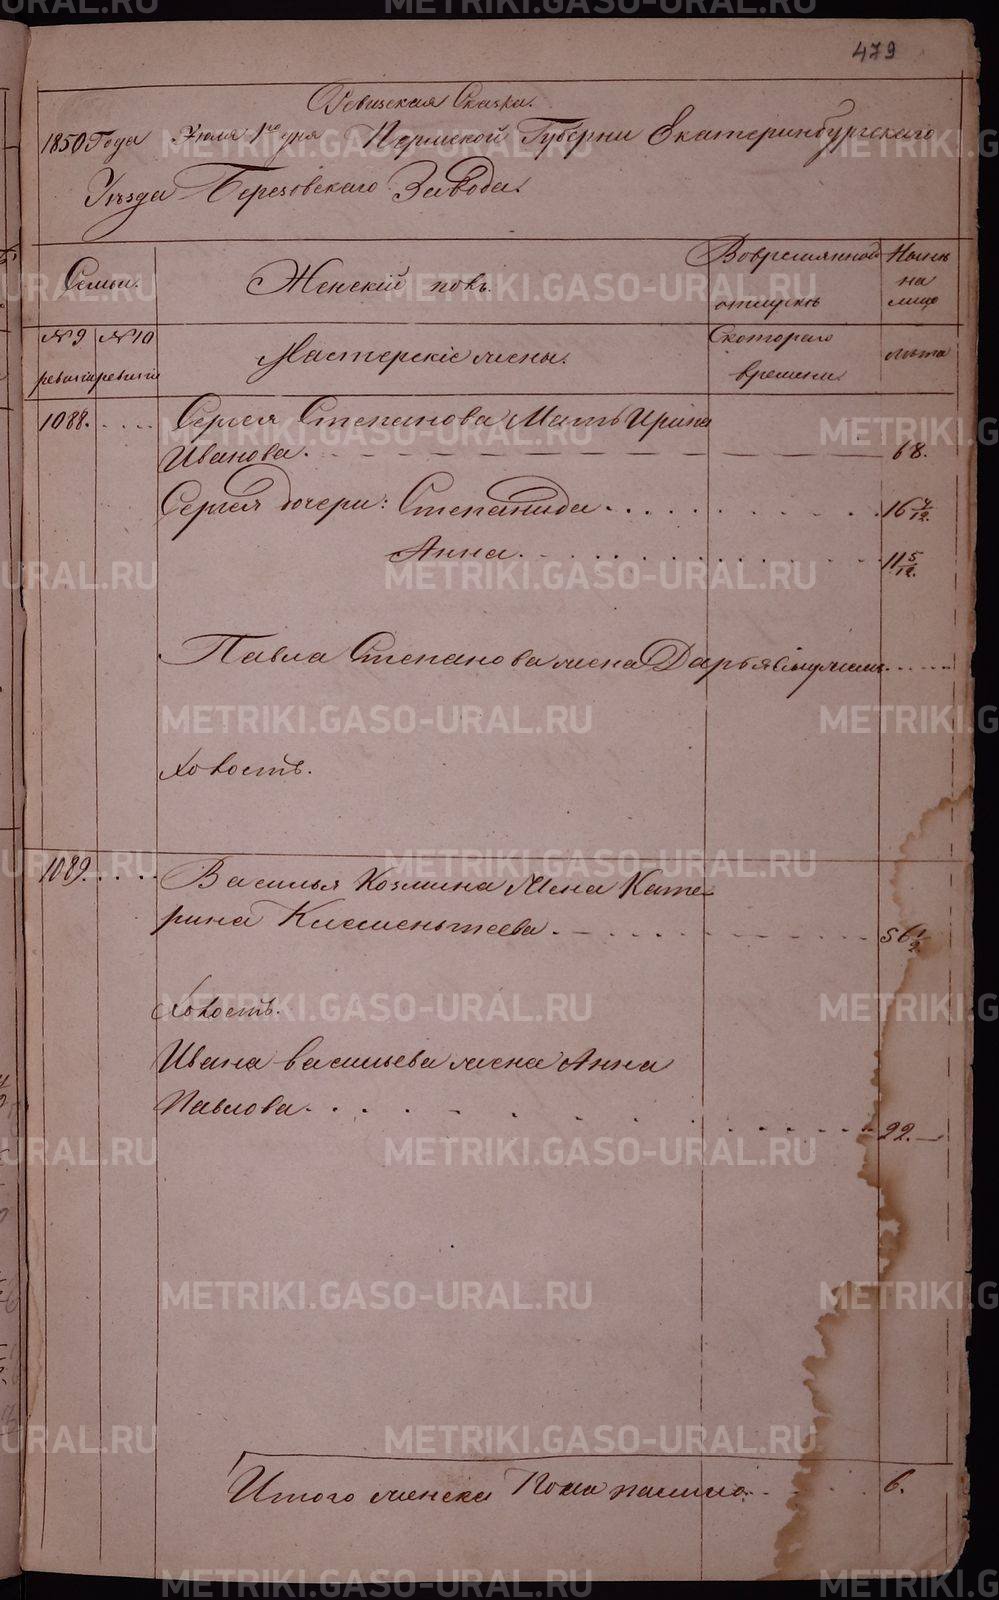 479
Ревизская Сказка.
1850 Года Июля 1го дня Пермской Губернии Екатеринбургскаго
Уезда Березовскаго Завода.
Семьи. Женскій полъ. Вовремянной отлучкѣ Нынѣ на лицо
№ 9 ревизіи № 10 ревизіи Мастерскіе жены. Скотораго времени. лѣта
1088. Сергея Степанова Мать Ирина
Иванова. 68.
Сергея дочери: Степанида 16 7/12.
Анна. 11 5/12.
Павла Степанова жена Дарья
Холостъ.
1089. Василья Козмина Жена Кате-
рина Клементьева. 56 1/2.
Холостъ.
Ивана Васильева жена Анна
Павлова. 22.
Итого женска Пола налицо. 6.
METRIKI.GASO-URAL.RU